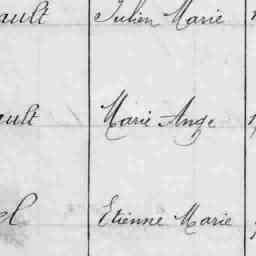 ault Julien Marie
ault Marie Ange
el Etienne Marie